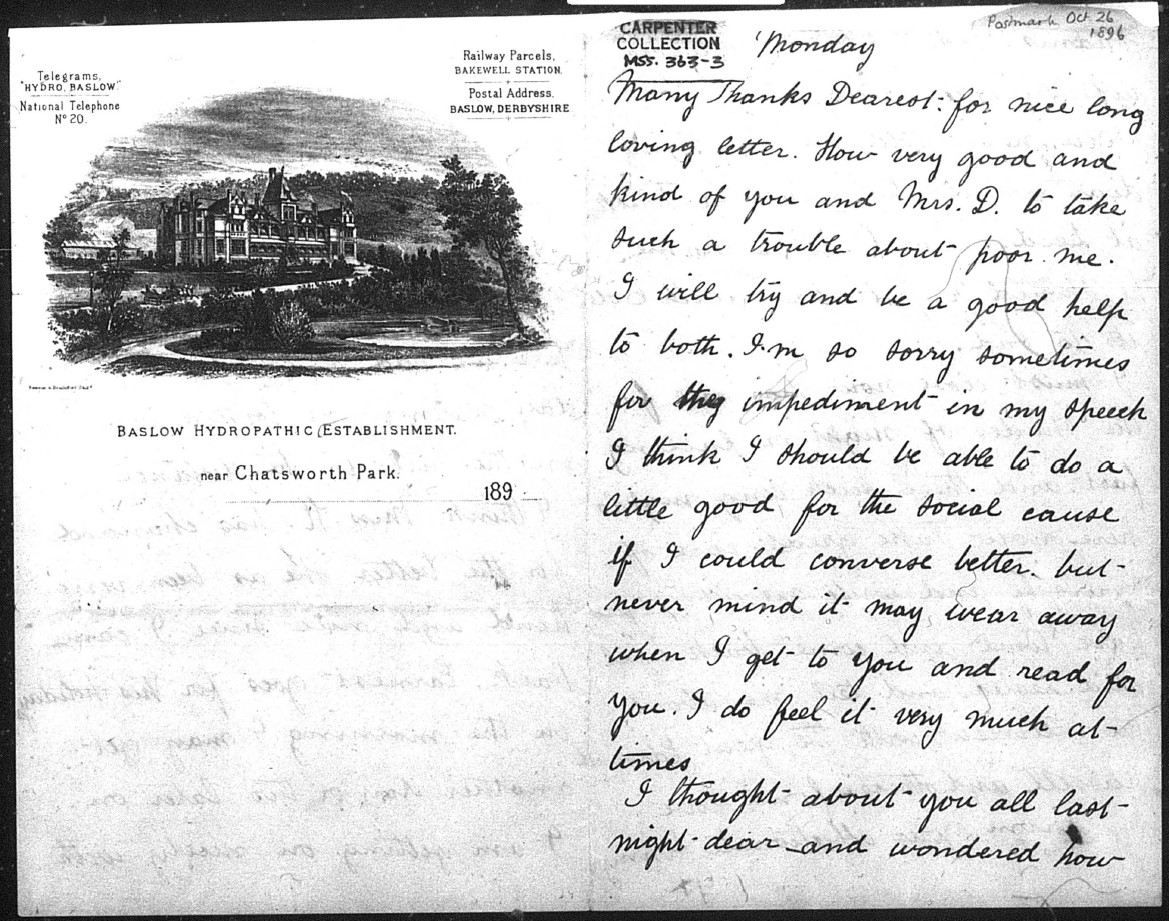 Telegrams,
"HYDRO, BASLOW."
National Telephone
No 20.
Railway Parcels,
BAKEWELL STATION.
Postal Address.
BASLOW, DERBYSHIRE
BASLOW HYDROPATHIC ESTABLISHMENT.
near Chatsworth Park.
189
CARPENTER
COLLECTION
MSS. 363-3
Postmark Oct 26
1896
Monday
Many Thanks Dearest: for nice long
loving letter. How very good and
kind of you and Mrs. D. to take
such a trouble about poor me.
I will try and be a good help
to both. I'm so sorry sometimes
for they impediment in my speech
I think I should be able to do a
little good for the social cause
if I could converse better. but
never mind it may wear away
when I get to you and read for
you. I do feel it very much at
times
I thought about you all last
night dear and wondered how